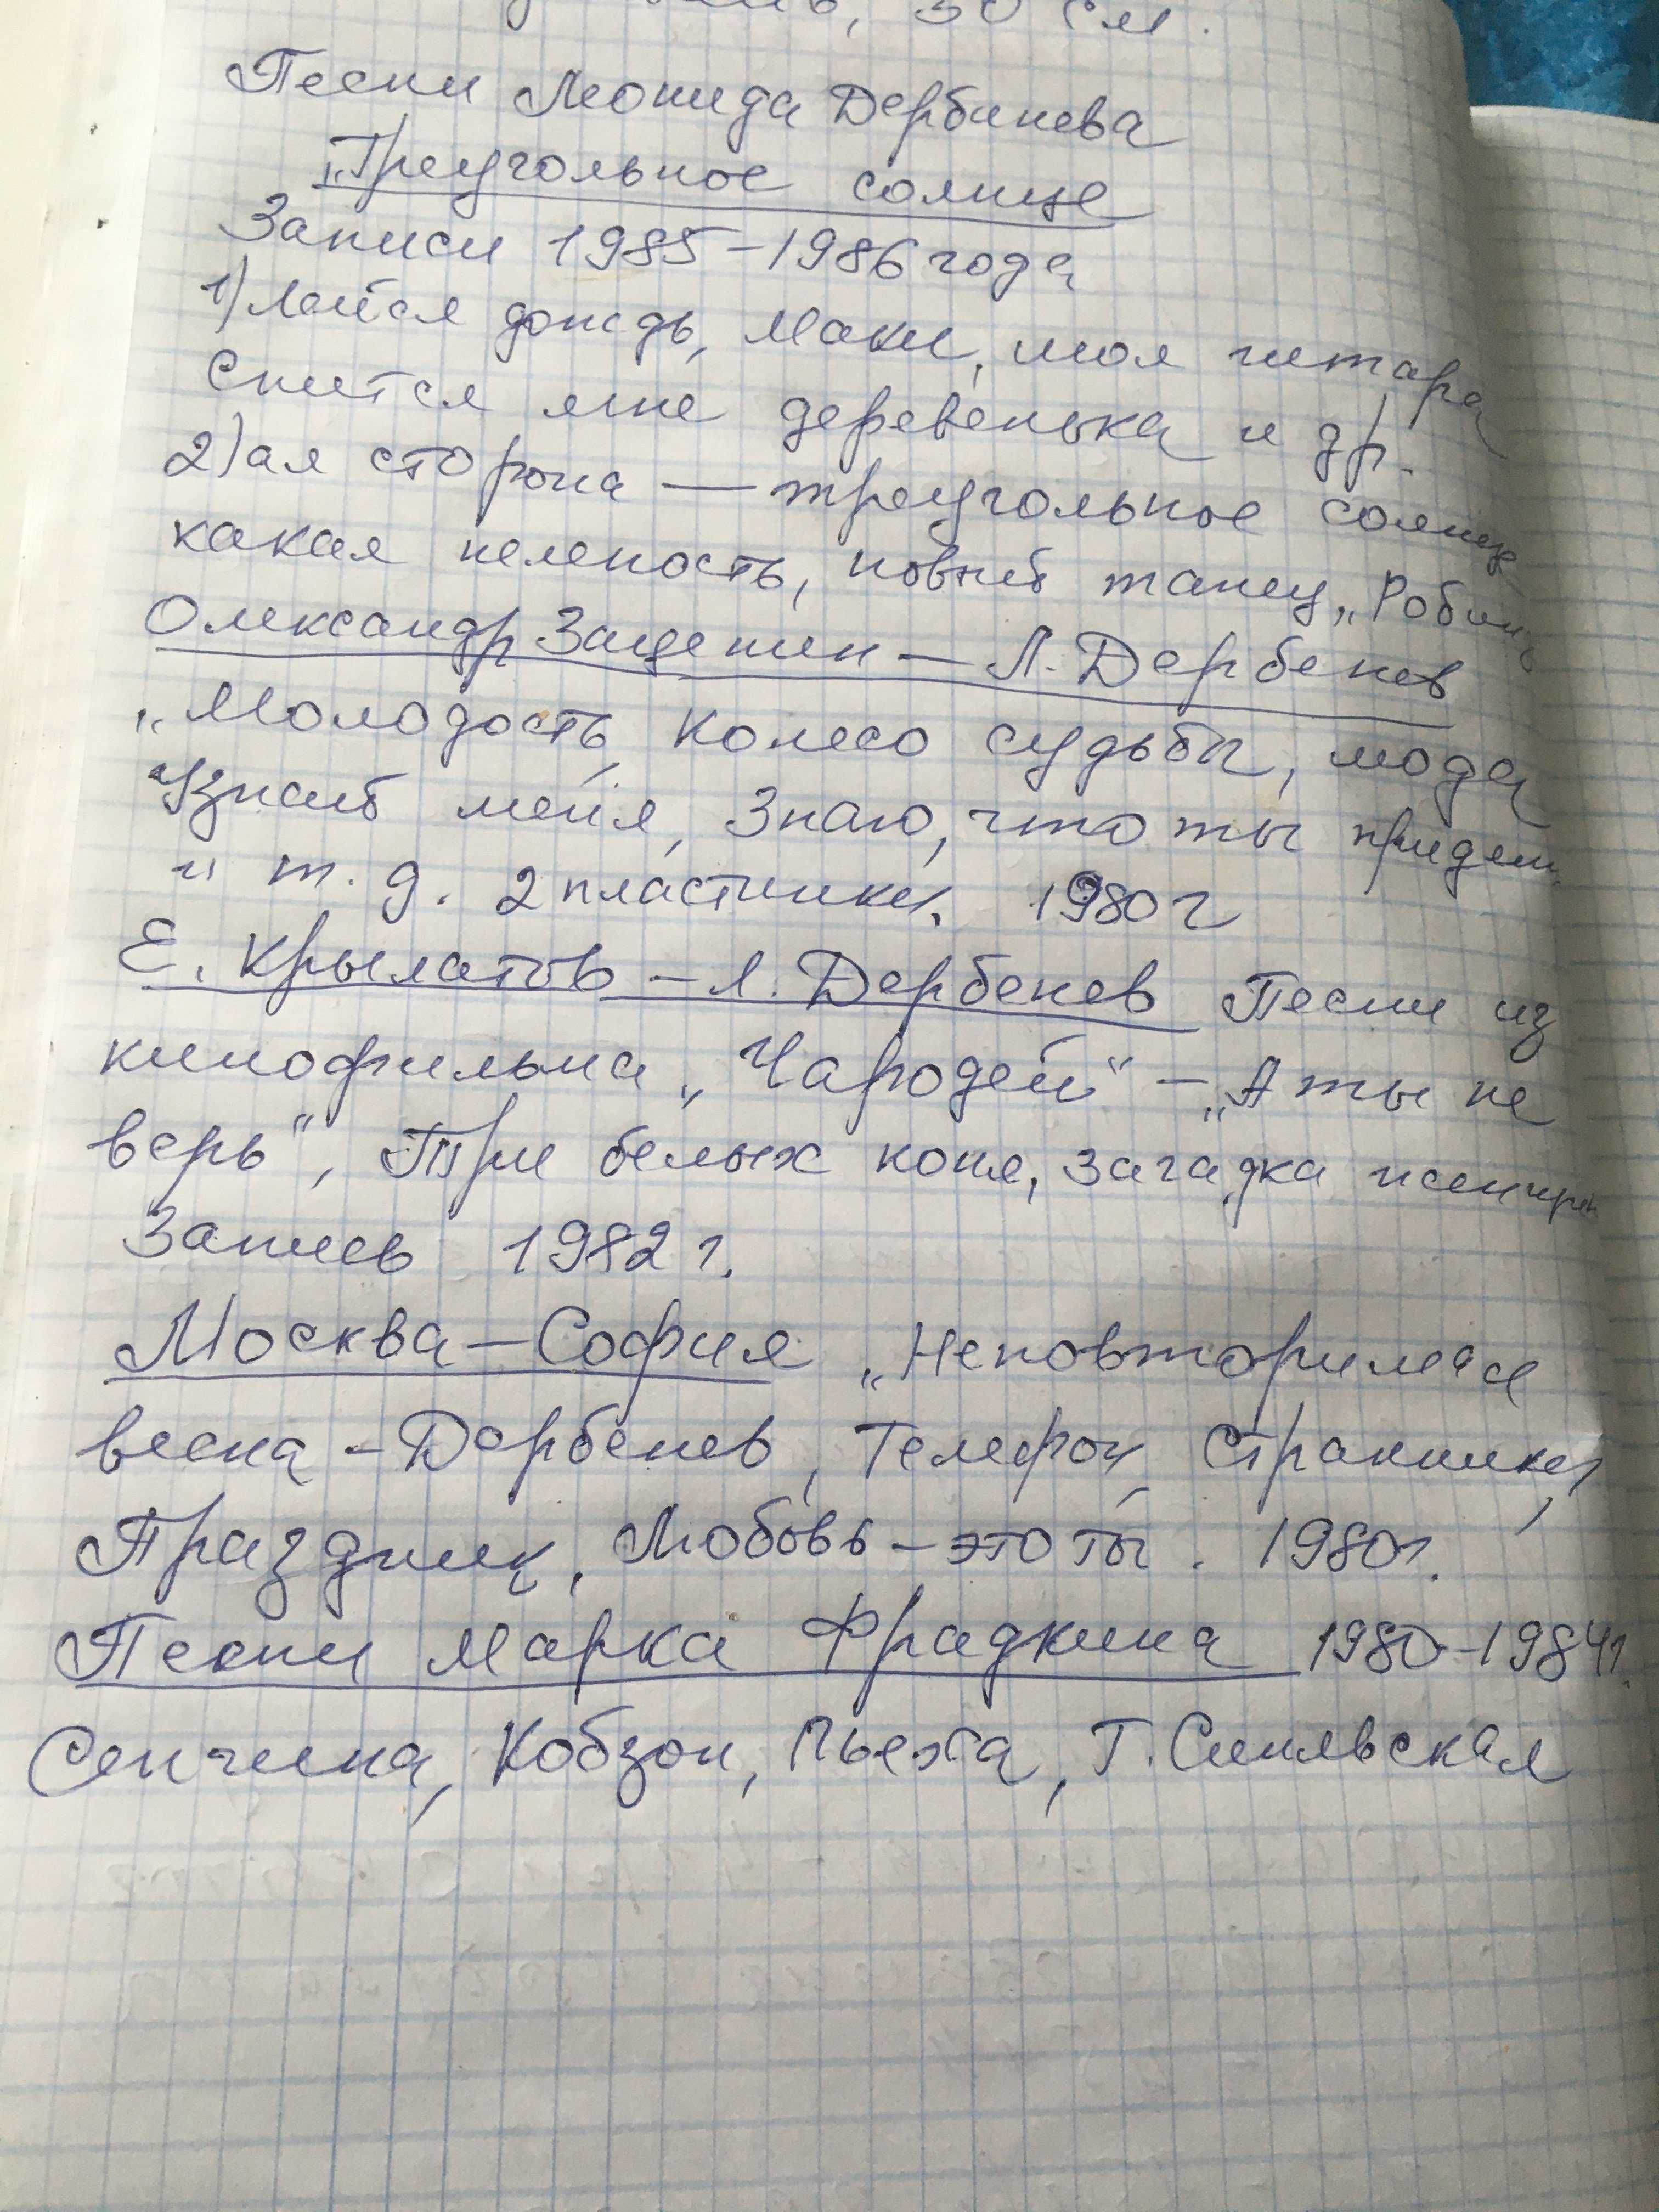 30 см.
Песни Леонида Дербинева
"Треугольное солнце
Записи 1985-1986 года
1) Лейся дождь, Маки, моя гитара
Снится мне деревенька и др.
2) ая сторона — треугольное солнце
какая нелепость, новый танец "Робин
Олександр Зацепин — Л. Дербенев
"Молодость, Колесо судьбы, мода
Узнай меня, Знаю, что ты придеш
и т. д. 2 пластинки. 1980 г
Е. Крылатов - Л. Дербенев Песни из
кинофильма "Чародей" - "А ты не
верь", Три белых коня, загадка женщин
Запись 1982 г.
Москва - София "Неповторимая
весна - Дербенев, Телефон, Странники,
Праздник, Любовь - это ты. 1980г.
Песни Марка Фрадкина 1980-1984г.
Сенчина, Кобзон, Пьеха, Т. Синявская